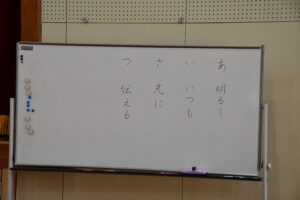 あ 明るく
い いつも
さ 先に
つ 伝える